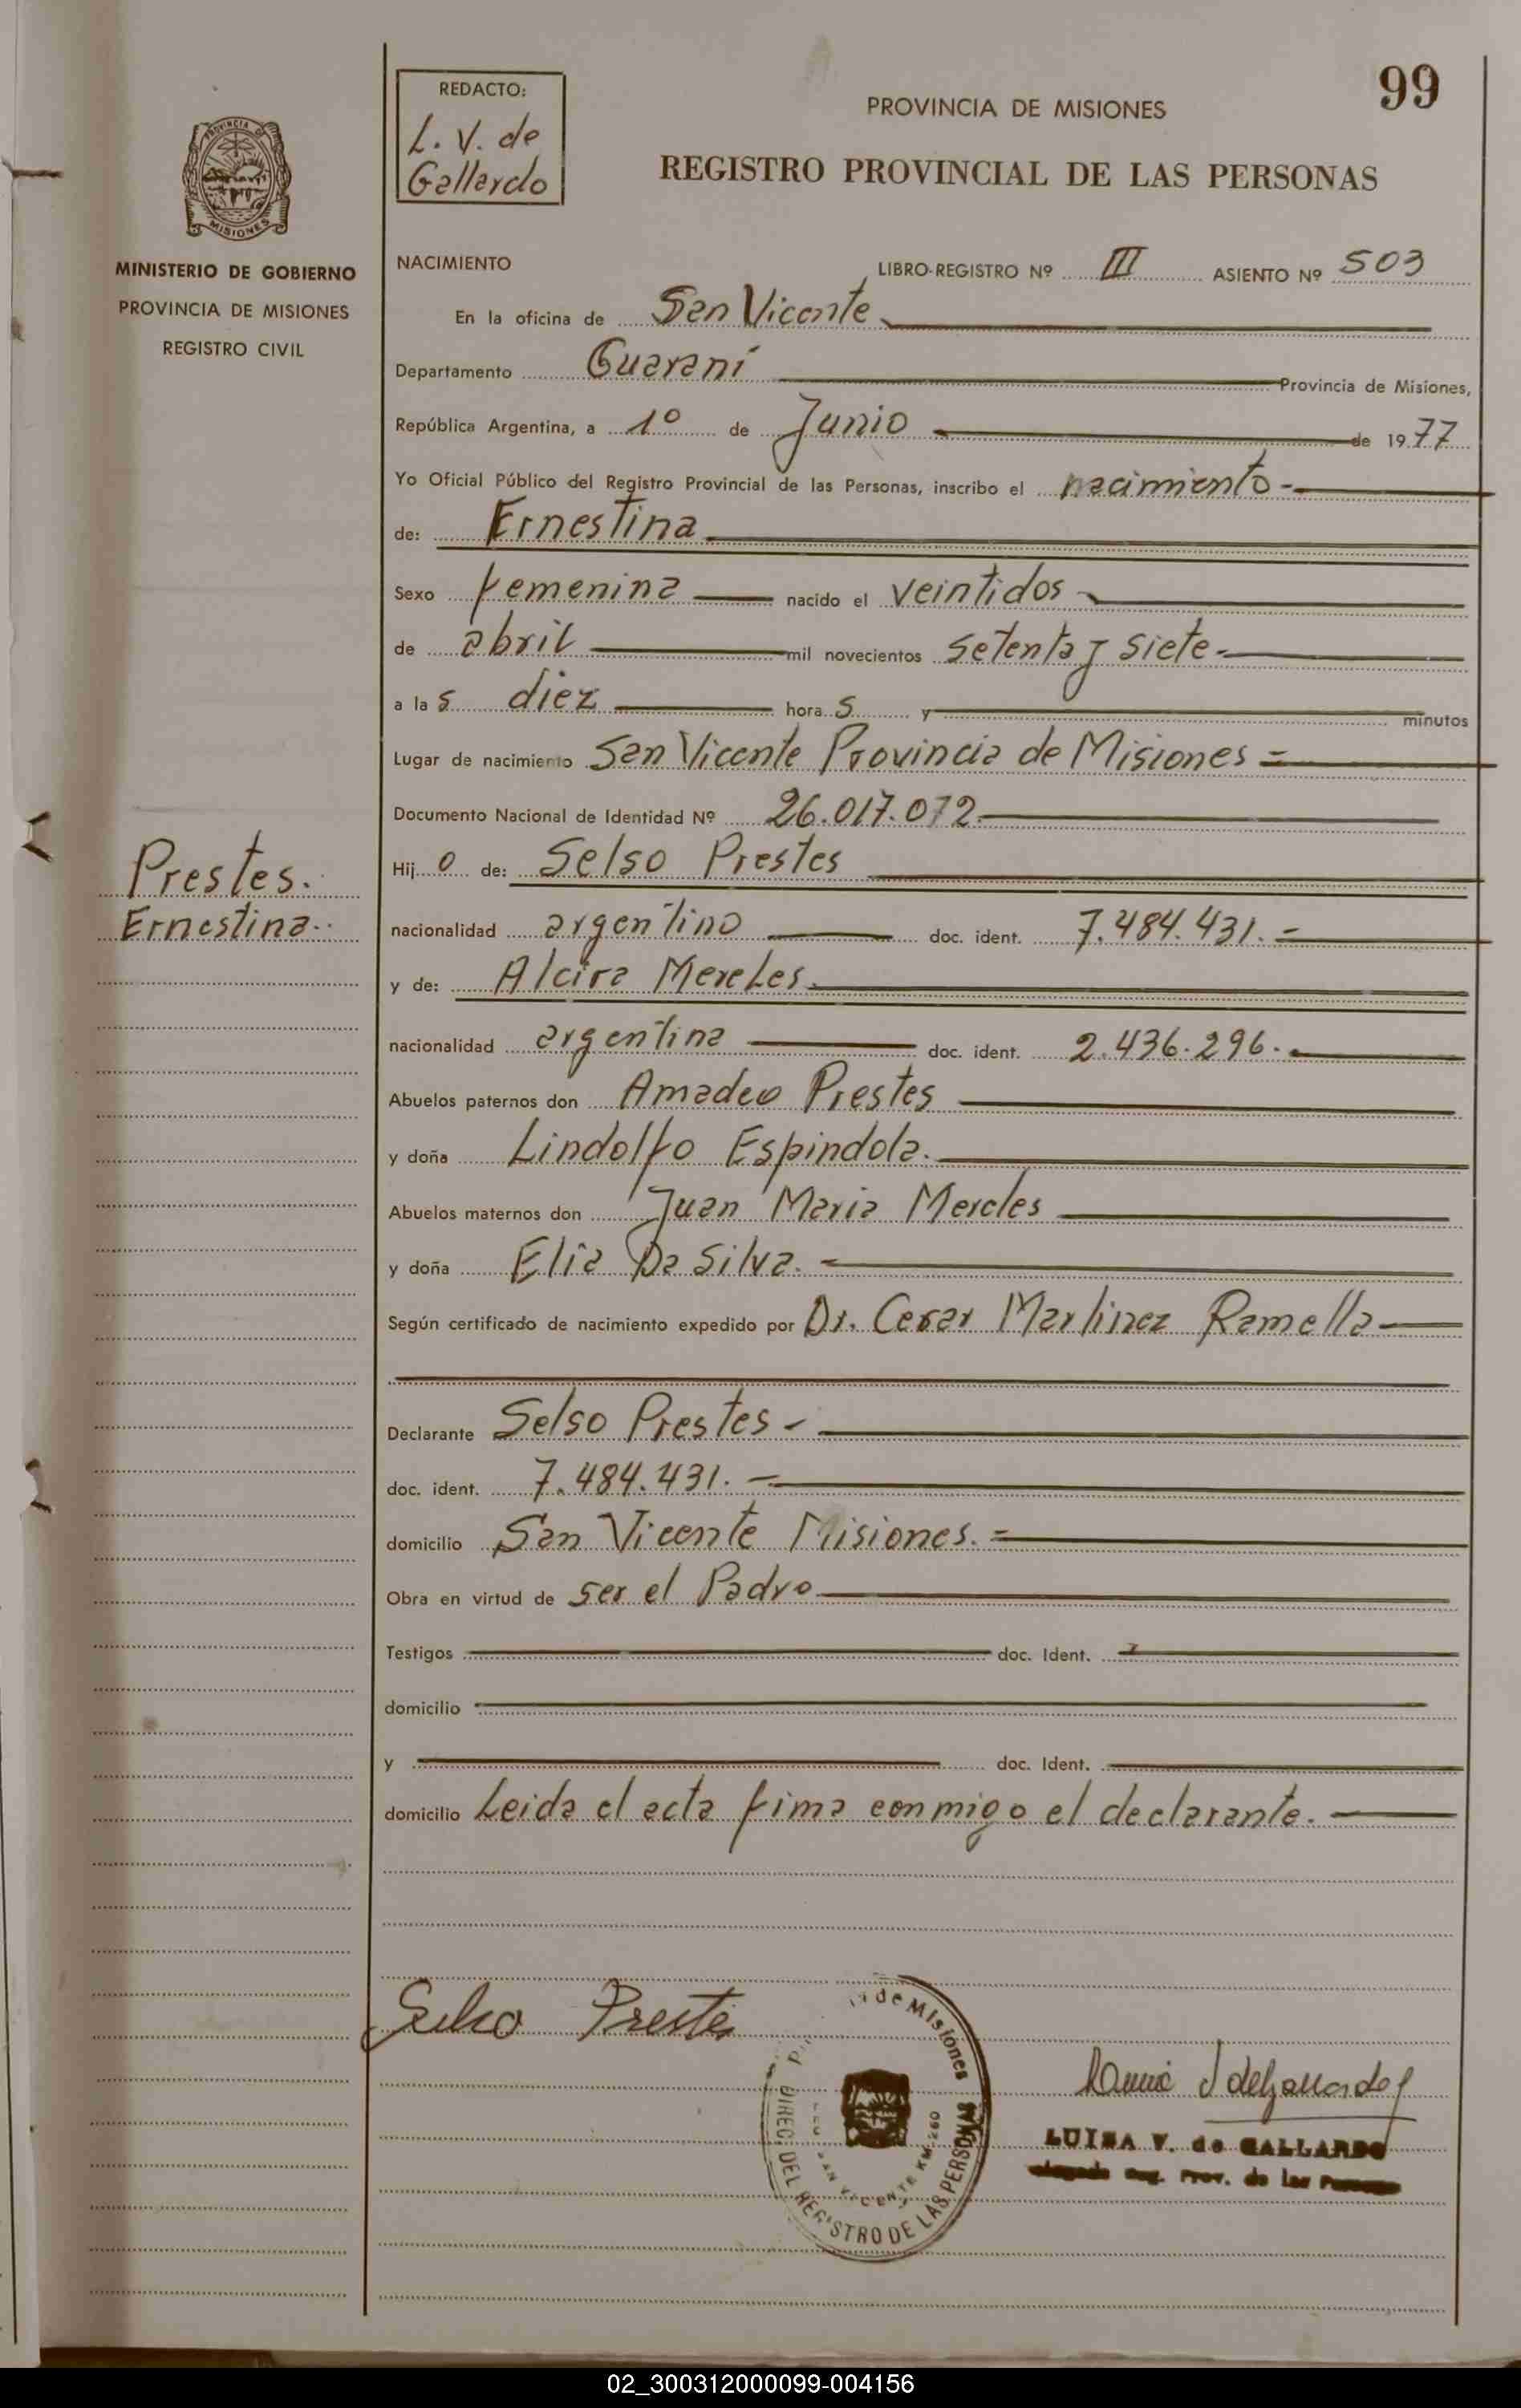 99
REDACTO:
L. V. de
Gallardo
PROVINCIA DE MISIONES
REGISTRO PROVINCIAL DE LAS PERSONAS
PROVINCIA DE
MISIONES
MINISTERIO DE GOBIERNO
PROVINCIA DE MISIONES
REGISTRO CIVIL
NACIMIENTO LIBRO-REGISTRO Nº III ASIENTO Nº 503
En la oficina de San Vicente
Departamento Guaraní Provincia de Misiones,
República Argentina, a 1º de Junio de 1977
Yo Oficial Público del Registro Provincial de las Personas, inscribo el nacimiento
de: Ernestina
Sexo femenina nacido el veintidos
de abril mil novecientos setenta y siete
a las diez horas y minutos
Lugar de nacimiento San Vicente Provincia de Misiones
Documento Nacional de Identidad Nº 26.017.072
Hijo de: Selso Prestes
Prestes.
Ernestina
nacionalidad argentino doc. ident. 7.484.431.
y de: Alcira Mereles
nacionalidad argentina doc. ident. 2.436.296.
Abuelos paternos don Amadeo Prestes
y doña Lindolfo Espindola.
Abuelos maternos don Juan Maria Mereles
y doña Elia Da Silva.
Según certificado de nacimiento expedido por Dr. Cesar Martinez Ramella
Declarante Selso Prestes
doc. ident. 7.484.431.
domicilio San Vicente Misiones.
Obra en virtud de ser el Padre
Testigos doc. Ident.
domicilio
y doc. Ident.
domicilio Leida el acta fima conmigo el declarante.
Selso Prestes
de Misiones
DIREC. DEL REGISTRO DE LAS PERSONAS
SAN VICENTE KM 260
LUISA V. de GALLARDO
Reg. Prov. de las Personas
02_300312000099-004156